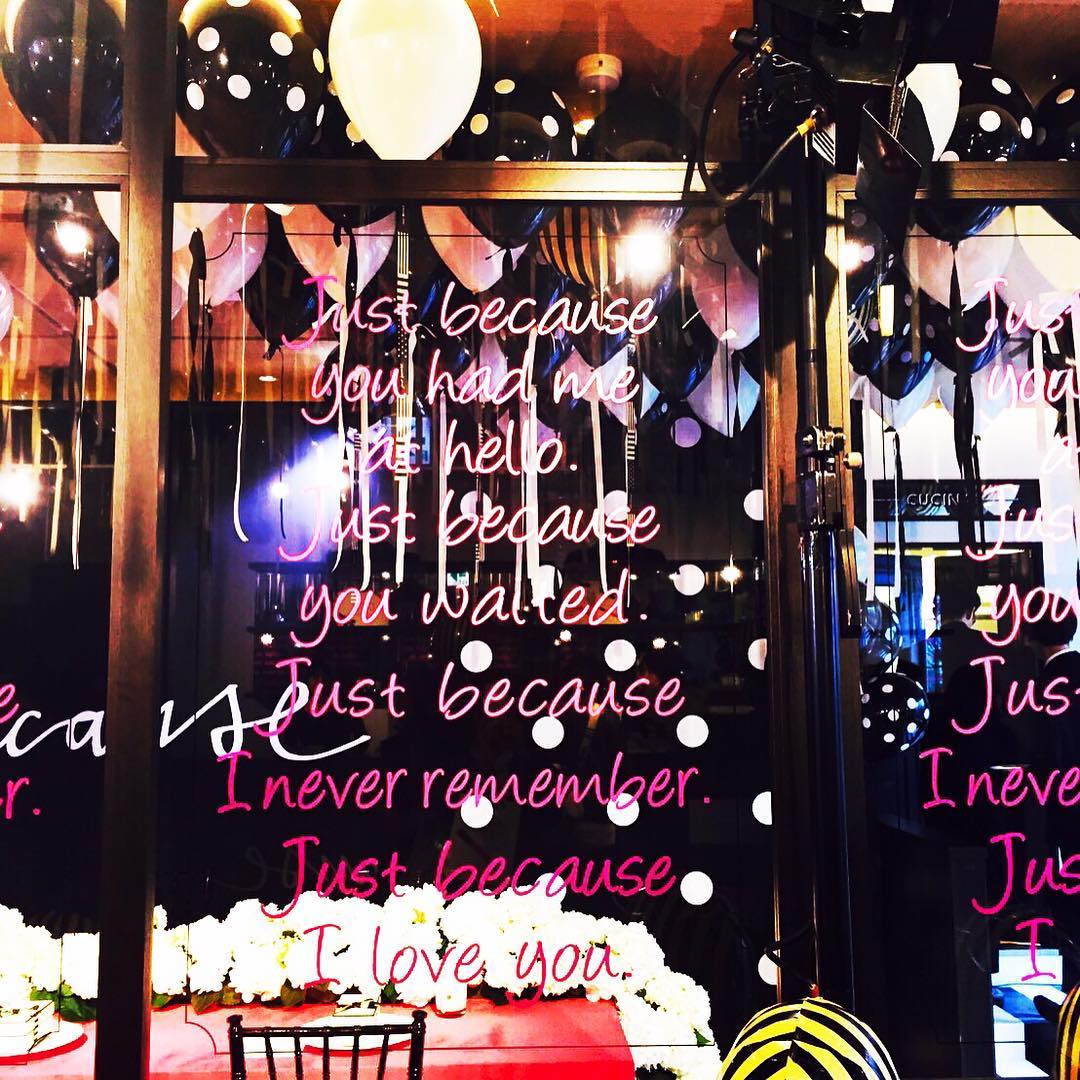 Just because
you had me
at hello.
Just because
you waited.
Just because
I never remember.
Just because
I love you.
cause
r.
Jus
you
a
CUCIN
Jus
you
Jus
I neve
Jus
I